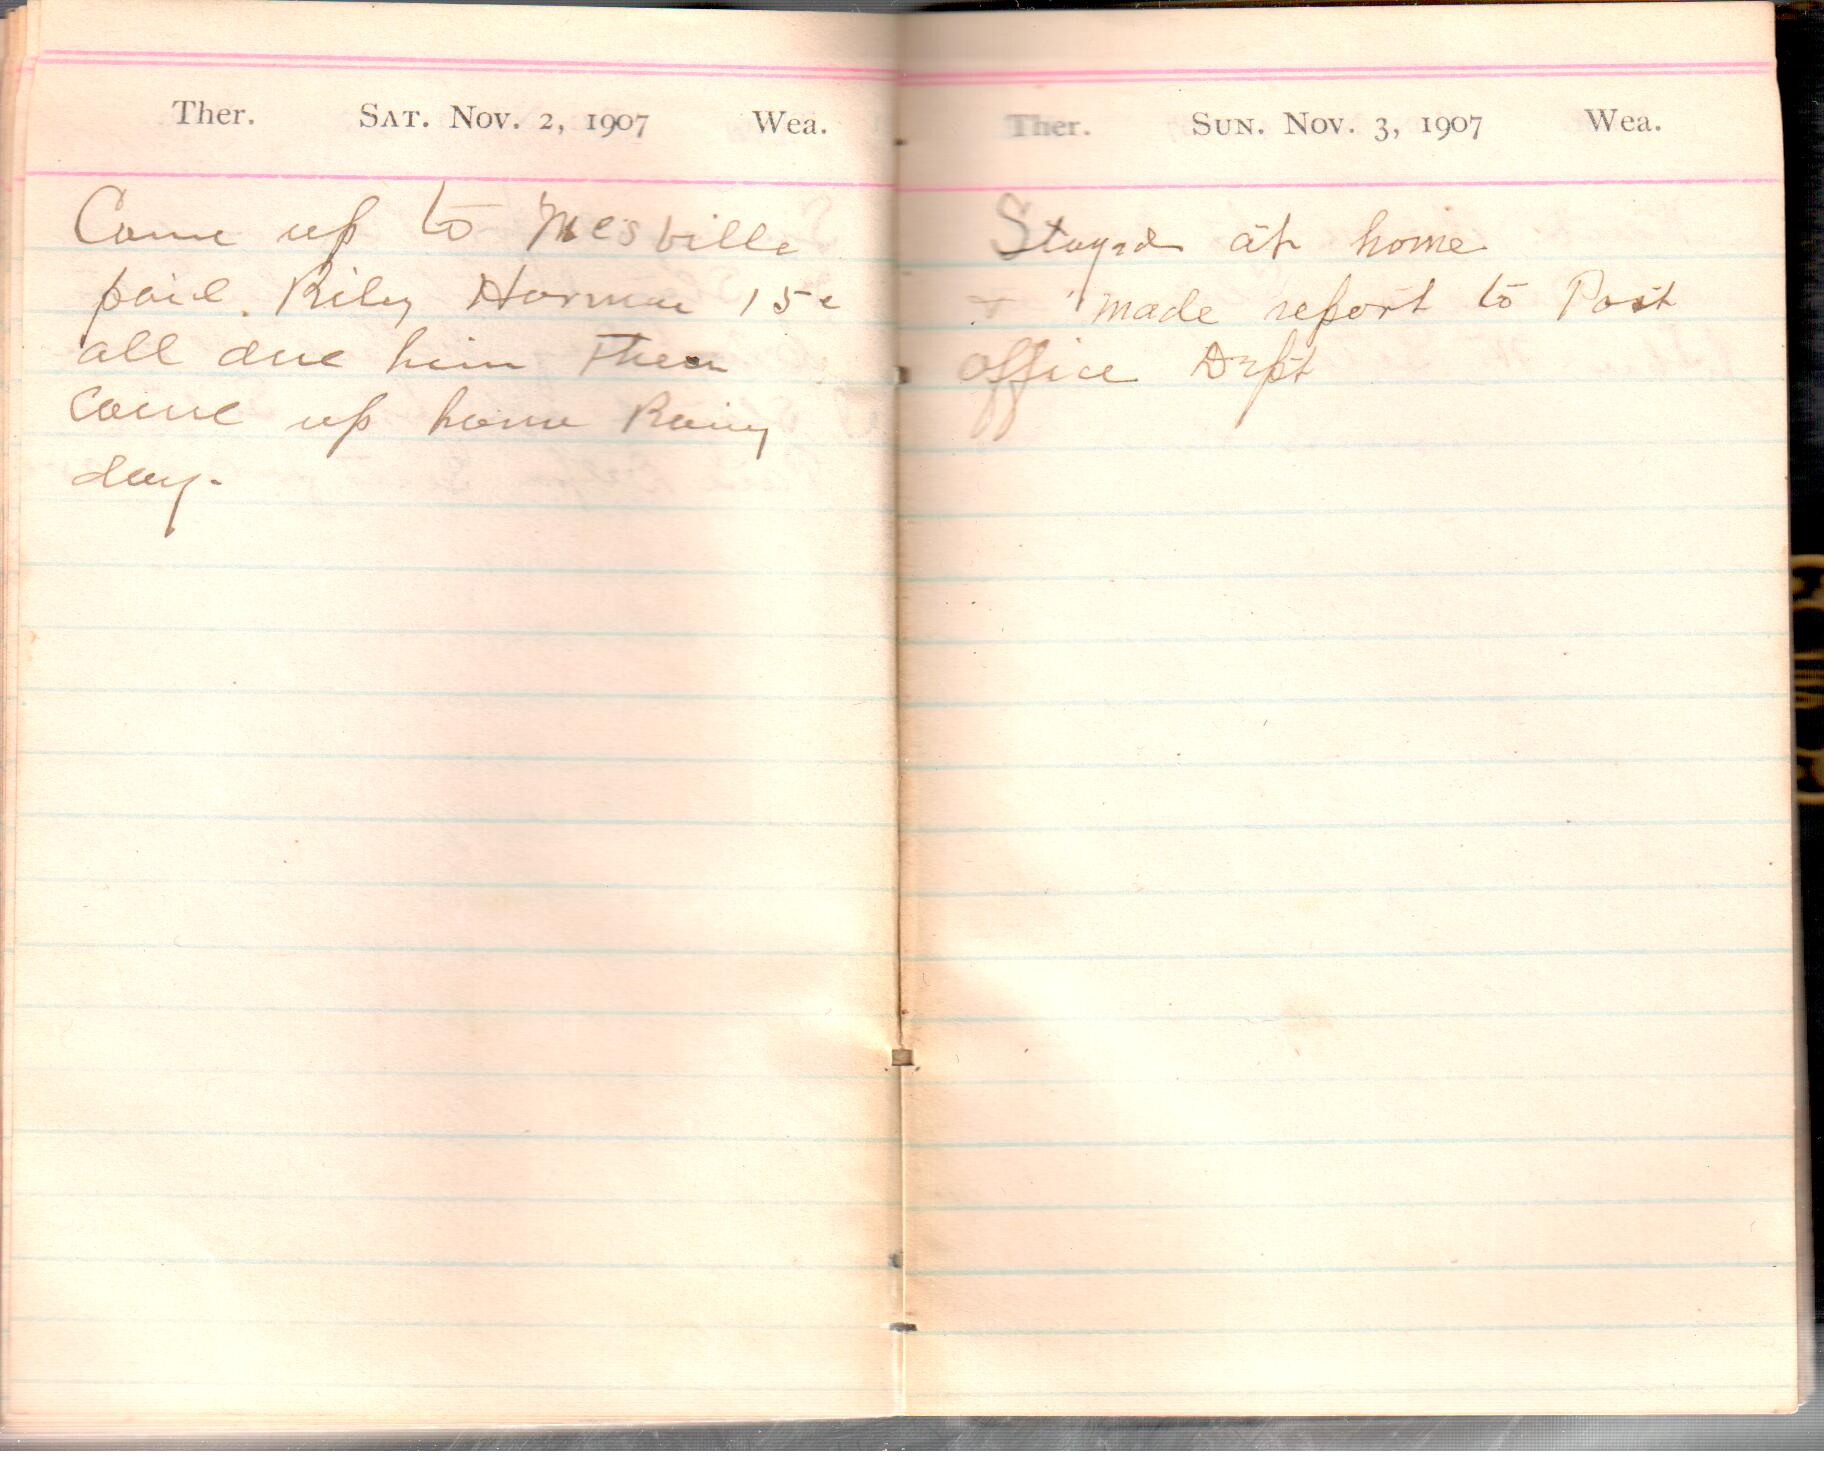 Ther. Sat. Nov. 2, 1907 Wea.
Came up to Mcsville
paid. Riley Harman 15c
all due him Then
Came up home Rainy
day.
Ther. Sun. Nov. 3, 1907 Wea.
Stayed at home
+ made report to Post
office Dept